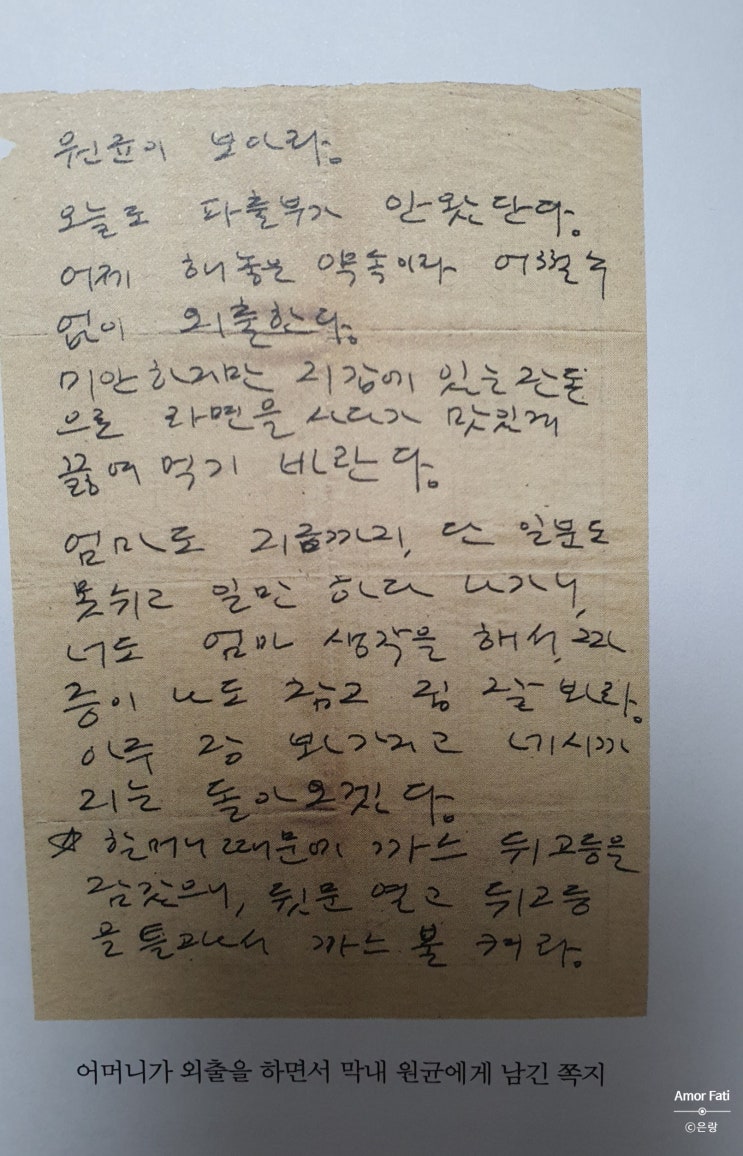 원균이 보아라.
오늘도 파출부가 안 왔단다.
어제 해 놓은 약속이라 어쩔 수
없이 외출한다.
미안하지만 지갑에 있는 잔돈
으로 라면을 사다가 맛있게
끓여 먹기 바란다.
엄마도 지금까지, 단 일분도
못쉬고 일만 하다 나가니,
너도 엄마 생각을 해서, 짜
증이 나도 참고 집 잘 보아라.
아주 잠 보아가지고 네시까
지는 돌아오겠다.
☆ 할머니 때문에 까스 뒤 고등을
잠갔으니, 뒷문 열고 뒤 고등
을 틀고나서 까스 불 켜라.
어머니가 외출을 하면서 막내 원균에게 남긴 쪽지
Amor Fati
ⓒ은랑